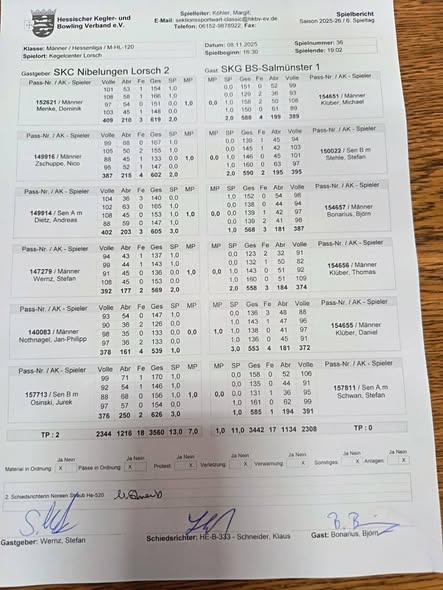 Hessischer Kegler- und
Bowling Verband e.V.
Spielleiter: Köhler, Margit,
E-Mail: sektionssportwart-classic@hkbv-ev.de
Telefon: 06152-9878922, Fax:
Spielbericht
Saison 2025-26 / 6. Spieltag
Klasse: Männer / Hessenliga / M-HL-120
Spielort: Kegelcenter Lorsch
Datum: 08.11.2025
Spielbeginn: 16:30
Spielnummer: 36
Spielende: 19:02
Gastgeber: SKC Nibelungen Lorsch 2
Gast: SKG BS-Salmünster 1
Pass-Nr. / AK - Spieler Volle Abr Fe Ges SP MP MP SP Ges Fe Abr Volle Pass-Nr. / AK - Spieler
101 53 1 154 1,0 0,0 151 0 52 99
152621 / Männer 108 58 1 166 1,0 0,0 129 2 36 93 154651 / Männer
Menke, Dominik 97 54 0 151 0,0 1,0 0,0 1,0 158 2 50 108 Klüber, Michael
103 45 1 148 0,0 1,0 150 0 61 89
409 210 3 619 2,0 2,0 588 4 199 389
Pass-Nr. / AK - Spieler Volle Abr Fe Ges SP MP MP SP Ges Fe Abr Volle Pass-Nr. / AK - Spieler
99 68 0 167 1,0 0,0 139 1 45 94
149916 / Männer 105 50 2 155 1,0 0,0 145 1 42 103 150022 / Sen B m
Zschuppe, Nico 88 45 1 133 0,0 1,0 0,0 1,0 146 0 45 101 Stehle, Stefan
95 52 1 147 0,0 1,0 160 0 63 97
387 215 4 602 2,0 2,0 590 2 195 395
Pass-Nr. / AK - Spieler Volle Abr Fe Ges SP MP MP SP Ges Fe Abr Volle Pass-Nr. / AK - Spieler
104 36 3 140 0,0 1,0 152 0 54 98
149914 / Sen A m 102 63 0 165 1,0 0,0 138 0 44 94 154657 / Männer
Dietz, Andreas 108 45 0 153 1,0 1,0 0,0 0,0 139 1 42 97 Bonarius, Björn
88 59 0 147 1,0 0,0 139 2 41 98
402 203 3 605 3,0 1,0 568 3 181 387
Pass-Nr. / AK - Spieler Volle Abr Fe Ges SP MP MP SP Ges Fe Abr Volle Pass-Nr. / AK - Spieler
94 43 1 137 1,0 0,0 123 2 32 91
147279 / Männer 99 44 1 143 1,0 0,0 132 1 50 82 154656 / Männer
Wernz, Stefan 91 45 0 136 0,0 1,0 0,0 1,0 143 0 51 92 Klüber, Thomas
108 45 0 153 0,0 1,0 160 0 51 109
392 177 2 569 2,0 2,0 558 3 184 374
Pass-Nr. / AK - Spieler Volle Abr Fe Ges SP MP MP SP Ges Fe Abr Volle Pass-Nr. / AK - Spieler
93 54 0 147 1,0 0,0 136 3 48 88
140083 / Männer 90 36 2 126 0,0 1,0 143 1 47 96 154655 / Männer
Nothnagel, Jan-Philipp 98 35 0 133 0,0 0,0 1,0 1,0 138 0 41 97 Klüber, Daniel
97 36 2 133 0,0 1,0 136 0 45 91
378 161 4 539 1,0 3,0 553 4 181 372
Pass-Nr. / AK - Spieler Volle Abr Fe Ges SP MP MP SP Ges Fe Abr Volle Pass-Nr. / AK - Spieler
99 71 1 170 1,0 0,0 158 0 52 106
157713 / Sen B m 92 54 1 146 1,0 0,0 135 0 44 91 157811 / Sen A m
Osinski, Jurek 88 68 0 156 1,0 1,0 0,0 0,0 131 1 36 95 Schwan, Stefan
97 57 0 154 0,0 1,0 161 0 62 99
376 250 2 626 3,0 1,0 585 1 194 391
TP : 2 2344 1216 18 3560 13,0 7,0 1,0 11,0 3442 17 1134 2308 TP : 0
Ja Nein Ja Nein Ja Nein Ja Nein Ja Nein Ja Nein Ja Nein
Material in Ordnung: X Pässe in Ordnung: X Protest: X Verletzung: X Verwarnung: X Sonstiges: X Anlagen: X
2. Schiedsrichterin Noreen Straub He-520
Gastgeber: Wernz, Stefan
Schiedsrichter: HE-B-333 - Schneider, Klaus
Gast: Bonarius, Björn